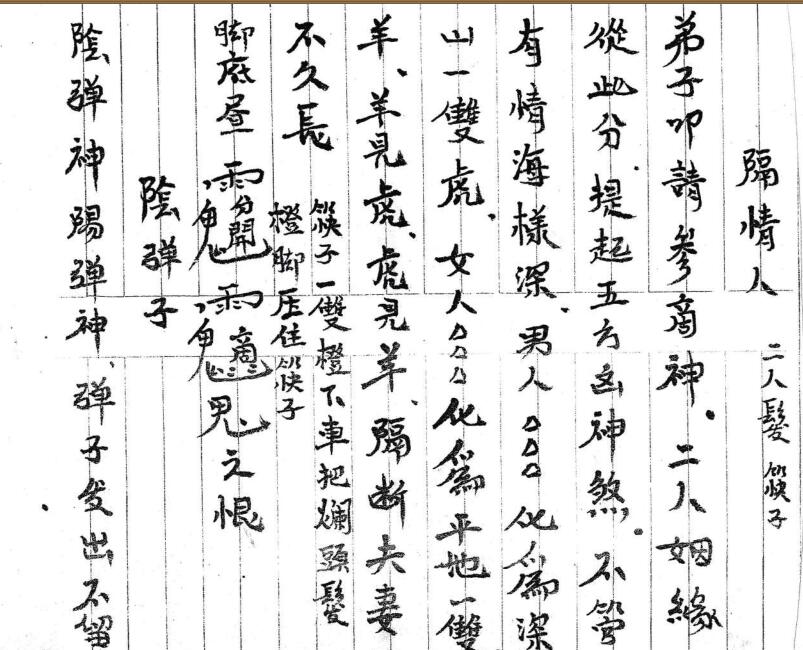 隔情人
二人髮筷子
弟子叩請參商神。二人姻緣
從此分、提起五方凶神煞。不管
有情海樣深。男人△△△化為深
山一雙虎。女人△△△化為平地一雙
羊、羊見虎、虎見羊、隔断夫妻
不久長
筷子一雙橙下車把爛頭髮
橙脚压住筷子
脚底昼
分開
之恨
陰弹子
陰弹神陽弹神、弹子发出不留